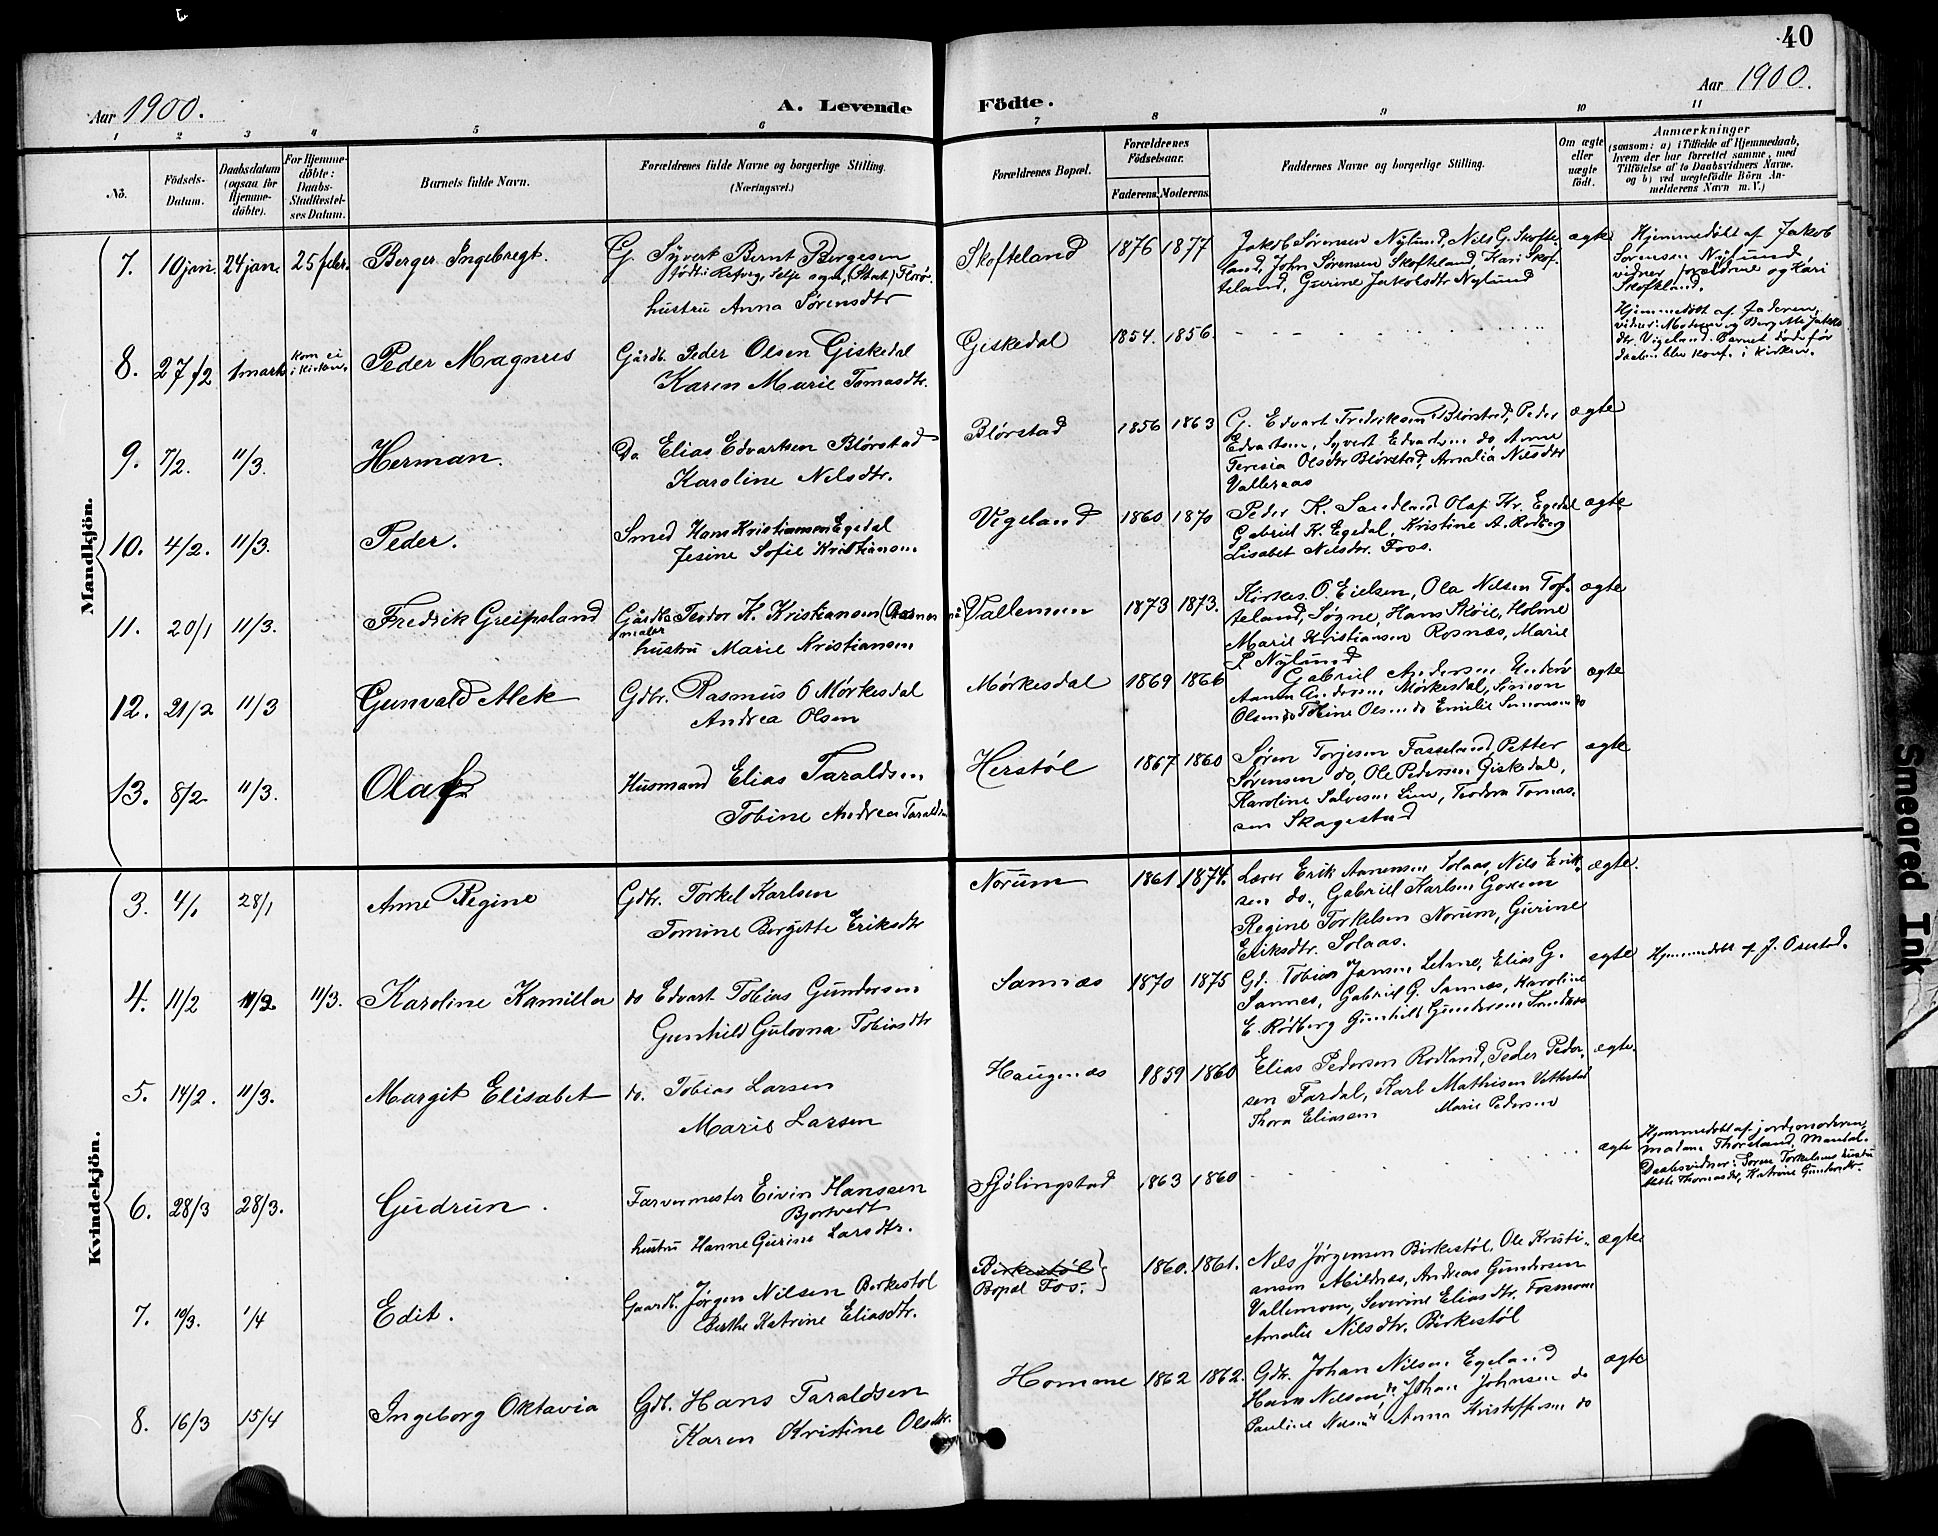 40
Aar 1900.
A. Levende Födte.
Aar 1900.
1 2 3 4 5 6 7 8 9 10 11
No.
Födsels-Datum.
Daabsdatum (ogsaa for Hjemme-döbte).
For Hjemme-döbte: Daabs-Stadfæstel-ses Datum.
Barnets fulde Navn.
Forældrenes fulde Navne og borgerlige Stilling.
(Næringsvei.)
Forældrenes Bopæl.
Forældrenes Födselsaar.
Faderens. Moderens.
Faddernes Navne og borgerlige Stilling.
Om ægte eller uægte födt.
Anmærkninger
(saasom: a) i Tilfælde af Hjemmedaab,
hvem der har forrettet samme, med
Tilföielse af to Daabsvidners Navne.
og b) ved uægtefödte Börn An-
melderens Navn m. V.)
Mandkjön.
7. 10 jan. 24 jan. 25 febr. Berger Ingebregt.
G. Syvert Bernt Børgesen
født i Refvog, Selje sogn, (Stat)
hustru Anna Sørensdtr
Skofteland 1876 1877
Jakob Sørensen Nylund, Nils G. Skofte-
land, John Sørensen Skofteland, Kari Skof-
teland, Gurine Jakobsdtr Nylund
ægte
Hjemmedøbt af Jakob
Sørensen Nylund
vidner forældrene og Kari
Skofteland.
8. 27/2 1 mark kom ei i kirken. Peder Magnus
Gårdb. Peder Olsen Giskedal
Karen Marie Tomasdtr.
Giskedal 1854. 1856.
Hjemmedøbt af faderen,
vidner: Moderen og Bergitte Jakobs
dtr. Vigeland. Barnet døde før
daaben blev konf. i kirken.
9. 7/2. 11/3. Herman.
Do Elias Edvartsen Blørstad
Karoline Nilsdtr.
Blørstad 1856 1863
G. Edvart Fredriksen Blørstad, Peder
Edvartsen, Syvert Edvartsen do, Anne
Teresia Olsdtr Blørstad, Amalia Nilsdtr
Valleraas
ægte
10. 4/2. 11/3. Peder.
Smed Hans Kristiansen Egedal
Jesine Sofie Kristiansen.
Vigeland 1860 1870
Peder K. Sandland Olaf Kr. Egedal
Gabriel K. Egedal, Kristine A. Rødberg
Lisabet Nilsdtr. Foss.
ægte
11. 20/1 11/3. Fredrik Greipsland
Gårdb. Teodor K. Kristiansen
maler
hustru Marie Kristiansen
Vallemoen 1873 1873.
Kirkes. O. Eielsen, Ola Nilsen Tof-
teland, Søgne, Hans Skøie, Holme
Marie Kristiansen Rosnæs, Marie
P Nylund
ægte
12. 21/2 11/3 Gunvald Alek
Gdbr. Rasmus O Mørkesdal
Andrea Olsen
Mørkesdal 1869 1866
Gabriel Andersen Underø
Aanen Andersen Mørkesdal, Simon
Olsen do Tobine Olsen do Emilie Simonsen do
ægte
13. 8/2 11/3. Olaf
Husmand Elias Taraldsen
Tobine Andrea Taraldsen
Herstøl 1867 1860
Søren Torjesen Fasseland, Petter
Sørensen do, Ole Pedersen Giskedal,
Karoline Salvesen Lien, Teodora Tomas-
sen Skagestad
ægte
Kvindekjön.
3. 4/1 28/1 Anne Regine
Gdbr. Torkel Karlsen
Tomine Bergitte Eriksdtr
Norum 1861. 1874.
Lærer Erik Aanensen Solaas, Nils Erik-
sen do., Gabriel Karlsen
Regine Torkelsen Norum, Gurine
Eriksdtr. Solaas.
ægte.
4. 11/2 11/2 11/3. Karoline Kamilla
do Edvart Tobias Gundersen
Gunhild Gulovna Tobiasdtr
Sannæs 1870 1875
Gd. Tobias Jansen Lehne, Elias G.
Sannes, Gabriel G. Sannæs, Karoline
E. Rødberg Gunhild Gundersen Sandnæs
ægte
Hjemmedøbt af J. Osestad.
5. 14/2. 11/3. Margit Elisabet
do. Tobias Larsen
Marie Larsen
Haugenæs 1859 1860
Elias Pedersen Rodland, Peder Peder-
sen Fardal, Karl Mathisen Vatteslad
Thora Eliassen Marie Pedersen
ægte.
6. 28/3 28/3. Gudrun.
Farvermester Eivin Hanssen
Bjortvedt
hustru Hanne Gurine Larsdtr.
Sjølingstad 1863 1860
ægte
Hjemmedøbt af jordemoderen,
Madam Thorsland, Mandal.
Daabsvidner: Soren Torkelsens hustru
Mette Thomasdtr, Katrine Gundersdtr.
7. 10/3. 1/4 Edit.
Gaardb. Jørgen Nilsen Birkestøl
Berthe Katrine Eliasdtr.
Birkestøl
Bopæl Fos.
1860. 1861.
Nils Jørgensen Birkestøl, Ole Kristi-
ansen Mildnæs, Andreas Gundersen
Vallemoen, Severine Eliasdtr. Fosmoen
Amalie Nilsdtr. Birkestøl
ægte
8. 16/3 15/4 Ingeborg Oktavia
Gdb. Hans Taraldsen
Karen Kristine Olsdtr.
Homme 1862 1862.
Gdb. Johan Nilsen Egeland
Hans Nilsen do Johan Johnsen do
Pauline Nilsen do Anna Kristoffersen do
ægte
Smeared Ink